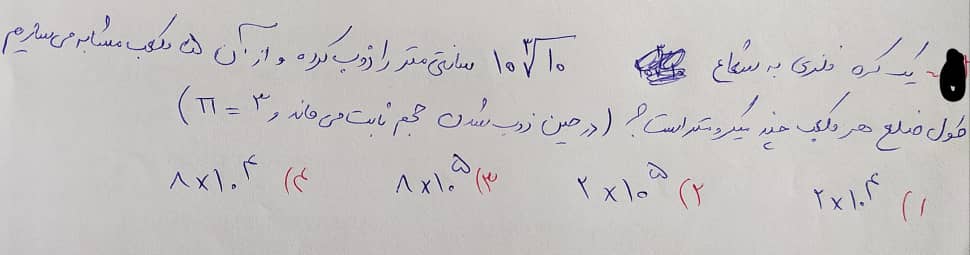 یک کره فلزی به شعاع ۱۰∛۱۰ سانتی‌متر را ذوب کرده و از آن ۵ مکعب مشابه می‌سازیم
طول ضلع هر مکعب چند میکرومتر است؟ (در حین ذوب شدن حجم ثابت می‌ماند و π = ۳)
۱) ۲×۱۰^۴ ۲) ۲×۱۰^۵ ۳) ۸×۱۰^۵ ۴) ۸×۱۰^۴